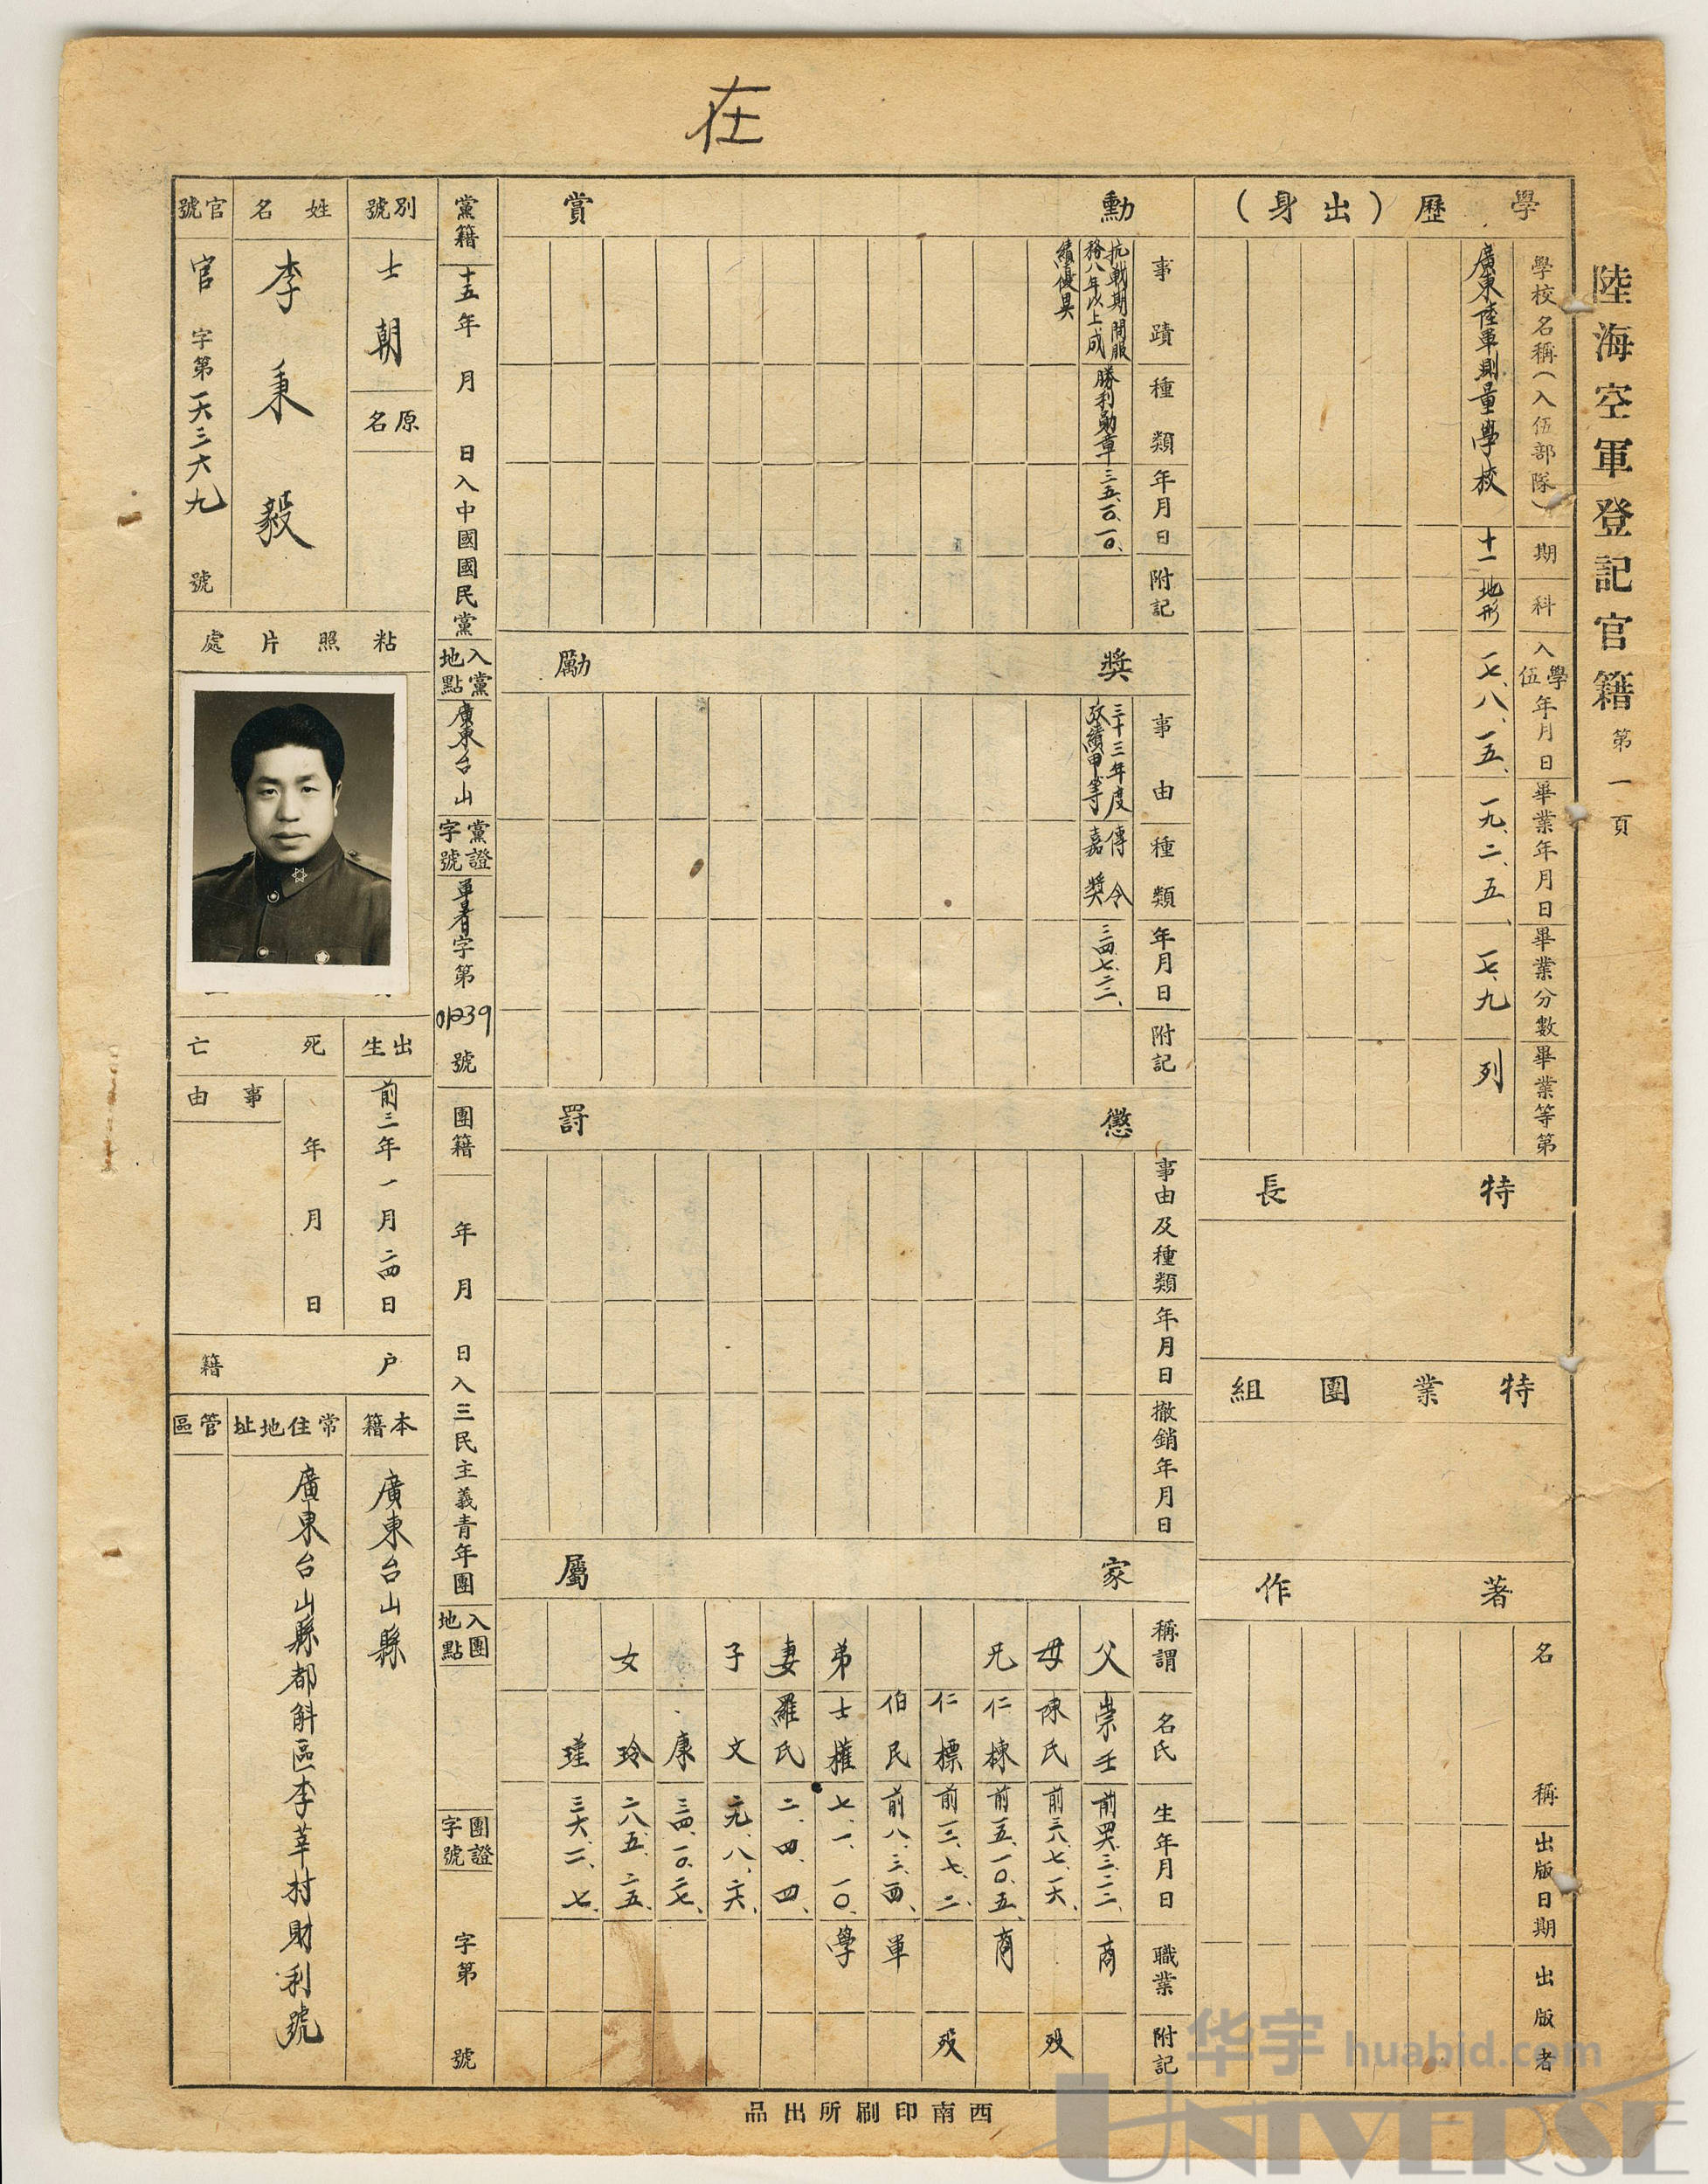 在
陸海空軍登記官籍 第一頁
學歷（出身）
學校名稱（入伍部隊） 期 科 入學伍年月日 畢業年月日 畢業分數 畢業等第
廣東陸軍測量學校 十一 地形 一七、八、一五、 一九、二、五 一七、九 列
特長
特業團組
著作
名稱 出版日期 出版者
勳賞
事蹟 種類 年月日 附記
抗戰期間服務八年以上成績優異 勝利勳章 三五、一〇、一〇、
獎勵
事由 種類 年月日 附記
三十三年度考績甲等 傳令嘉獎 三四、七、二二、
懲罰
事由及種類 年月日 撤銷年月日
家屬
稱謂 名氏 生年月日 職業 附記
父 崇壬 前四六、三、二二、 商
母 陳氏 前三八、七、一六、 歿
兄 仁棟 前一五、一〇、五、 商
仁標 前一三、七、二、 歿
伯民 前八、三、四、 軍
弟 士權 七、一、一〇、 學
妻 羅氏 二、四、四、
子 文 二九、八、二六、
康 三四、一〇、二七、
女 玲 二八、五、二五、
瑾 三六、二、七、
黨籍 十五年 月 日入中國國民黨 入黨地點 廣東台山 黨證字號 軍粵字第01239號
團籍 年 月 日入三民主義青年團 入團地點 團證字號 字第 號
別號 士朝
原名
姓名 李秉毅
官號 官字第一六三六九號
粘照片處
出生 前三年一月二四日
死亡 年 月 日
事由
戶籍
本籍 廣東台山縣
常住地址 廣東台山縣都斛區李莘村財利號
管區
西南印刷所出品
华宇 huabid.com
UNIVERSE